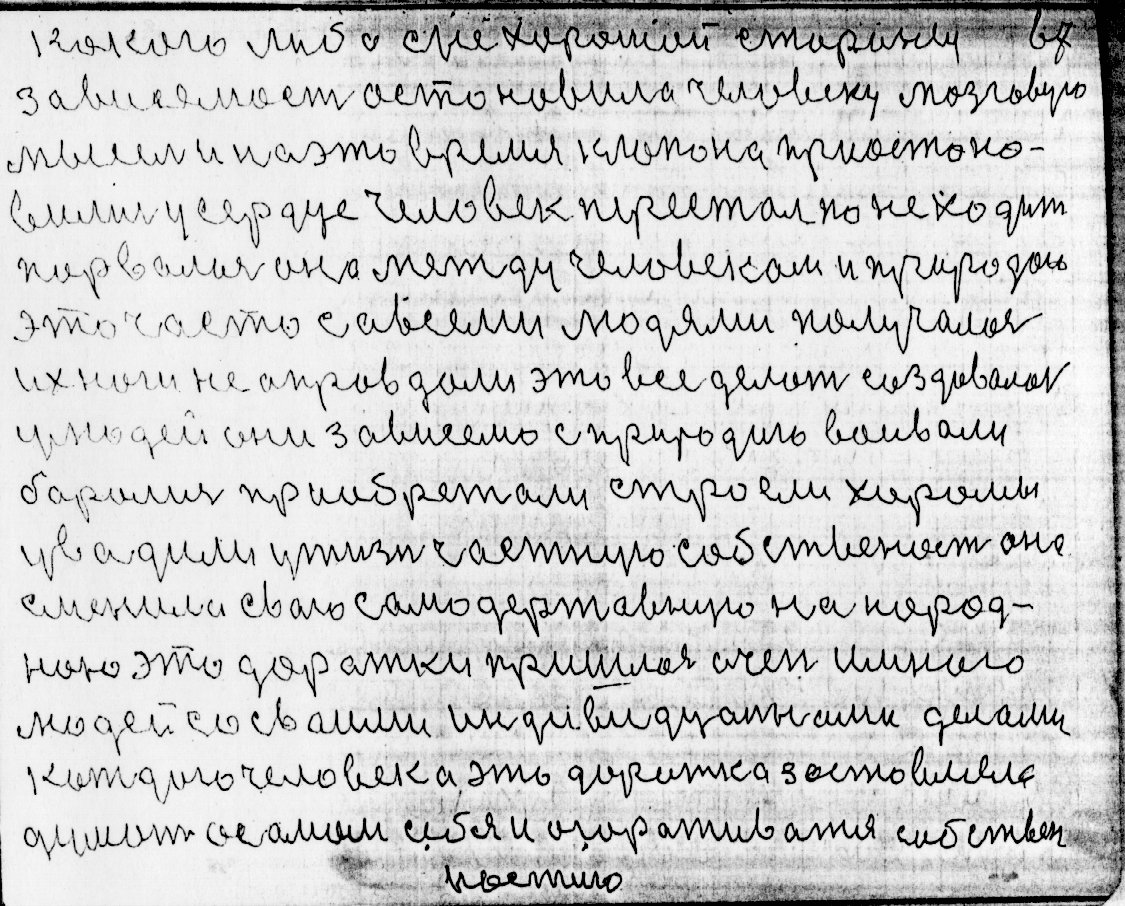 какого либо с нехорошой старины вз
зависемост остоновила человеку мозговую
мысел и на это время клопона приостоно-
вилис у сердце человек перестал по не ходит
порвалас она между человеком и природою
это часто савсеми людями получалос
их ноги не оправдали это все делат создавалос
у людей они зависемо с природию воивали
боролис приобретали строели хоромы
уводили у жизн частную собственост она
сменила сваю самодержавную на народ-
ною это доражки пришлос очен и много
людей со сваими индивидуалными делами
каждого человека это доражка зоставляла
думат о самом себя и огораживатя собствен
ностию